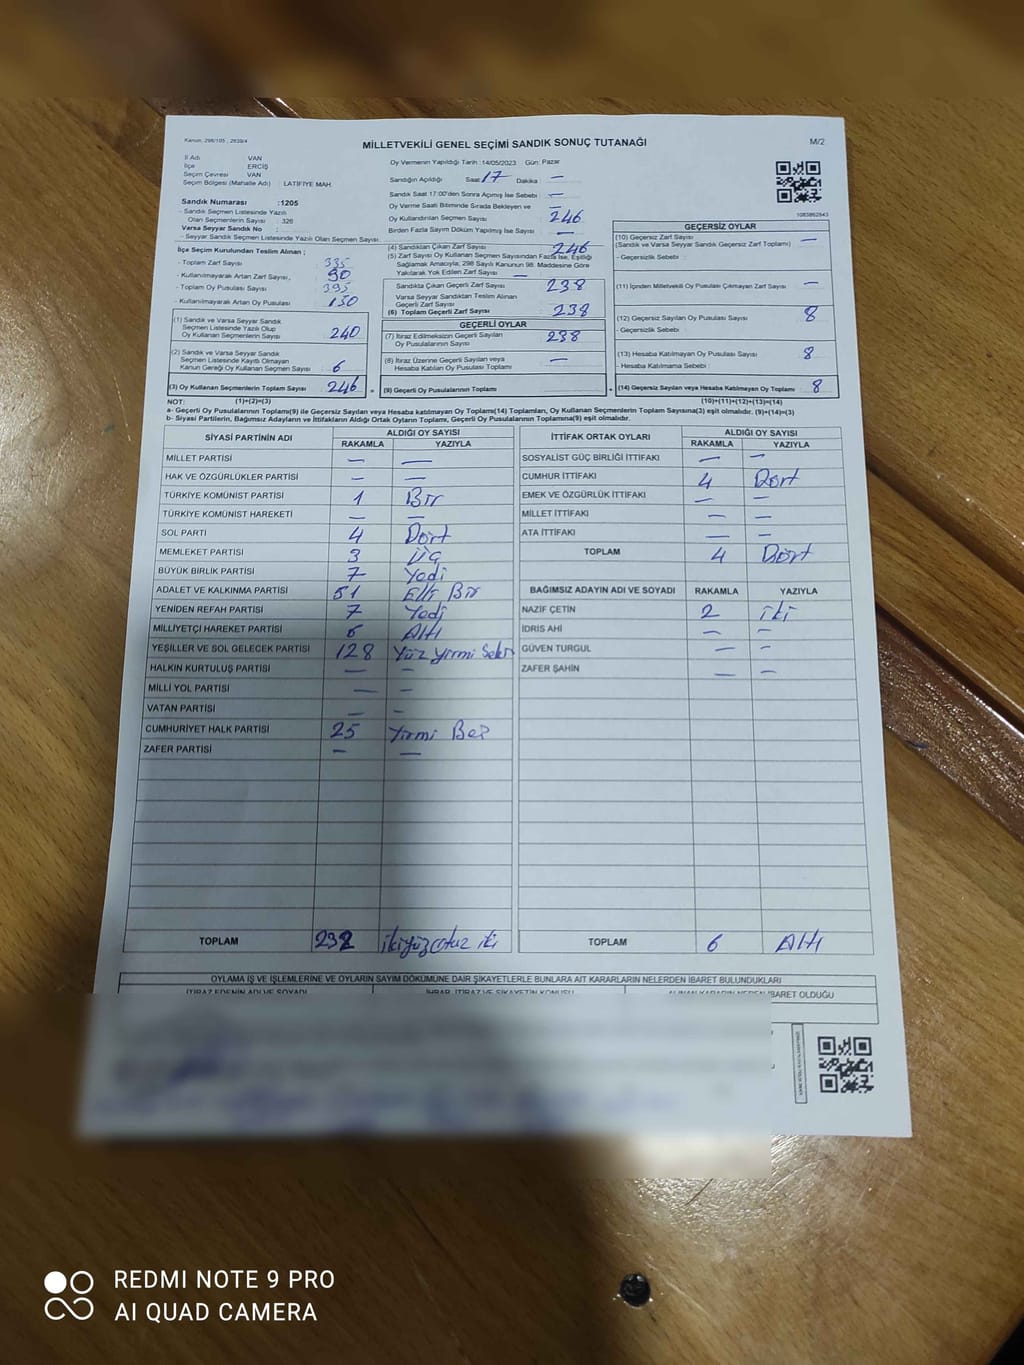 Kanun: 298/105 ; 2839/4
MİLLETVEKİLİ GENEL SEÇİMİ SANDIK SONUÇ TUTANAĞI
M/2
İl Adı VAN
İlçe ERCİŞ
Seçim Çevresi VAN
Seçim Bölgesi (Mahalle Adı) LATİFİYE MAH.
Sandık Numarası :1205
- Sandık Seçmen Listesinde Yazılı
Olan Seçmenlerin Sayısı : 326
Varsa Seyyar Sandık No :
- Seyyar Sandık Seçmen Listesinde Yazılı Olan Seçmen Sayısı :
İlçe Seçim Kurulundan Teslim Alınan ;
- Toplam Zarf Sayısı 335
- Kullanılmayarak Artan Zarf Sayısı, 90
- Toplam Oy Pusulası Sayısı 395
- Kullanılmayarak Artan Oy Pusulası 150
(1) Sandık ve Varsa Seyyar Sandık
Seçmen Listesinde Yazılı Olup
Oy Kullanan Seçmenlerin Sayısı 240
(2) Sandık ve Varsa Seyyar Sandık
Seçmen Listesinde Kayıtlı Olmayan
Kanun Gereği Oy Kullanan Seçmen Sayısı 6
(3) Oy Kullanan Seçmenlerin Toplam Sayısı 246 =
Oy Vermenin Yapıldığı Tarih : 14/05/2023 Gün: Pazar
Sandığın Açıldığı Saat: 17 Dakika : —
Sandık Saat 17:00'den Sonra Açılmış İse Sebebi : —
Oy Verme Saati Bitiminde Sırada Bekleyen ve —
Oy Kullandırılan Seçmen Sayısı 246
Birden Fazla Sayım Döküm Yapılmış İse Sayısı —
(4) Sandıktan Çıkan Zarf Sayısı 246
(5) Zarf Sayısı Oy Kullanan Seçmen Sayısından Fazla İse, Eşitliği
Sağlamak Amacıyla; 298 Sayılı Kanunun 98. Maddesine Göre
Yakılarak Yok Edilen Zarf Sayısı —
Sandıkta Çıkan Geçerli Zarf Sayısı 238
Varsa Seyyar Sandıktan Teslim Alınan
Geçerli Zarf Sayısı
(6) Toplam Geçerli Zarf Sayısı 238
GEÇERLİ OYLAR
(7) İtiraz Edilmeksizin Geçerli Sayılan
Oy Pusulasının Sayısı 238
(8) İtiraz Üzerine Geçerli Sayılan veya
Hesaba Katılan Oy Pusulası Toplamı —
(9) Geçerli Oy Pusulalarının Toplamı +
1083862843
GEÇERSİZ OYLAR
(10) Geçersiz Zarf Sayısı
(Sandık ve Varsa Seyyar Sandık Geçersiz Zarf Toplamı) —
- Geçersizlik Sebebi :
(11) İçinden Milletvekili Oy Pusulası Çıkmayan Zarf Sayısı —
(12) Geçersiz Sayılan Oy Pusulası Sayısı 8
- Geçersizlik Sebebi :
(13) Hesaba Katılmayan Oy Pusulası Sayısı 8
- Hesaba Katılmama Sebebi :
(14) Geçersiz Sayılan veya Hesaba Katılmayan Oy Toplamı 8
NOT: (1)+(2)=(3) (10)+(11)+(12)+(13)=(14)
a- Geçerli Oy Pusulalarının Toplamı(9) ile Geçersiz Sayılan veya Hesaba katılmayan Oy Toplamı(14) Toplamları, Oy Kullanan Seçmenlerin Toplam Sayısına(3) eşit olmalıdır. (9)+(14)=(3)
b- Siyasi Partilerin, Bağımsız Adayların ve İttifakların Aldığı Ortak Oyların Toplamı, Geçerli Oy Pusulalarının Toplamına(9) eşit olmalıdır.
SİYASİ PARTİNİN ADI ALDIĞI OY SAYISI
RAKAMLA YAZIYLA
MİLLET PARTİSİ — —
HAK VE ÖZGÜRLÜKLER PARTİSİ — —
TÜRKİYE KOMÜNİST PARTİSİ 1 Bir
TÜRKİYE KOMÜNİST HAREKETİ — —
SOL PARTİ 4 Dört
MEMLEKET PARTİSİ 3 Üç
BÜYÜK BİRLİK PARTİSİ 7 Yedi
ADALET VE KALKINMA PARTİSİ 51 Elli Bir
YENİDEN REFAH PARTİSİ 7 Yedi
MİLLİYETÇİ HAREKET PARTİSİ 6 Altı
YEŞİLLER VE SOL GELECEK PARTİSİ 128 Yüz Yirmi Sekiz
HALKIN KURTULUŞ PARTİSİ — —
MİLLİ YOL PARTİSİ — —
VATAN PARTİSİ — —
CUMHURİYET HALK PARTİSİ 25 Yirmi Beş
ZAFER PARTİSİ — —
TOPLAM 232 ikiyüzotuz iki
İTTİFAK ORTAK OYLARI ALDIĞI OY SAYISI
RAKAMLA YAZIYLA
SOSYALİST GÜÇ BİRLİĞİ İTTİFAKI — —
CUMHUR İTTİFAKI 4 Dört
EMEK VE ÖZGÜRLÜK İTTİFAKI — —
MİLLET İTTİFAKI — —
ATA İTTİFAKI — —
TOPLAM 4 Dört
BAĞIMSIZ ADAYIN ADI VE SOYADI RAKAMLA YAZIYLA
NAZİF ÇETİN 2 iki
İDRİS AHİ — —
GÜVEN TURGUL — —
ZAFER ŞAHİN — —
TOPLAM 6 Altı
OYLAMA İŞ VE İŞLEMLERİNE VE OYLARIN SAYIM DÖKÜMÜNE DAİR ŞİKAYETLERLE BUNLARA AİT KARARLARIN NELERDEN İBARET BULUNDUKLARI
İTİRAZ EDENİN ADI VE SOYADI İHBAR, İTİRAZ VE ŞİKAYETİN KONUSU ALINAN KARARIN NEDEN İBARET OLDUĞU
REDMI NOTE 9 PRO
AI QUAD CAMERA